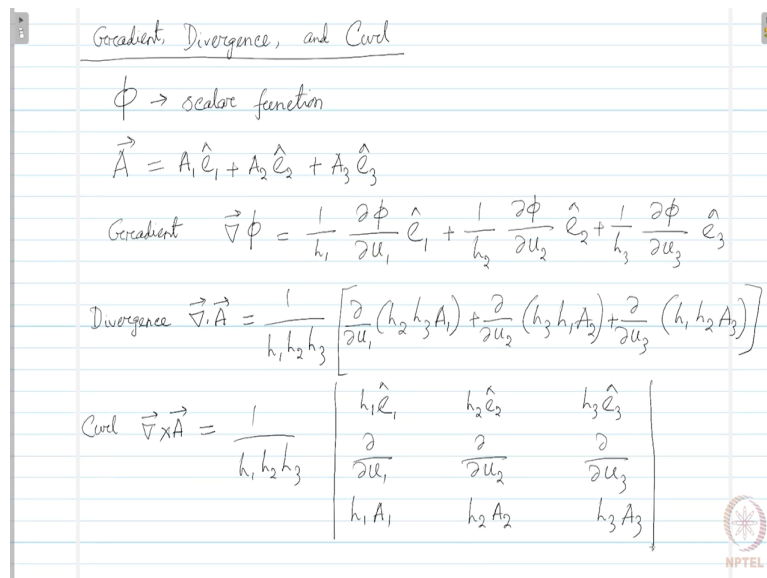 Gradient, Divergence, and Curl
ϕ → scalar function
A⃗ = A₁ê₁ + A₂ê₂ + A₃ê₃
Gradient ∇⃗ϕ = 1/h₁ ∂ϕ/∂u₁ ê₁ + 1/h₂ ∂ϕ/∂u₂ ê₂ + 1/h₃ ∂ϕ/∂u₃ ê₃
Divergence ∇⃗.A⃗ = 1/(h₁h₂h₃) [∂/∂u₁ (h₂h₃A₁) + ∂/∂u₂ (h₃h₁A₂) + ∂/∂u₃ (h₁h₂A₃)]
Curl ∇⃗×A⃗ = 1/(h₁h₂h₃) | h₁ê₁ h₂ê₂ h₃ê₃ |
| ∂/∂u₁ ∂/∂u₂ ∂/∂u₃ |
| h₁A₁ h₂A₂ h₃A₃ |
NPTEL